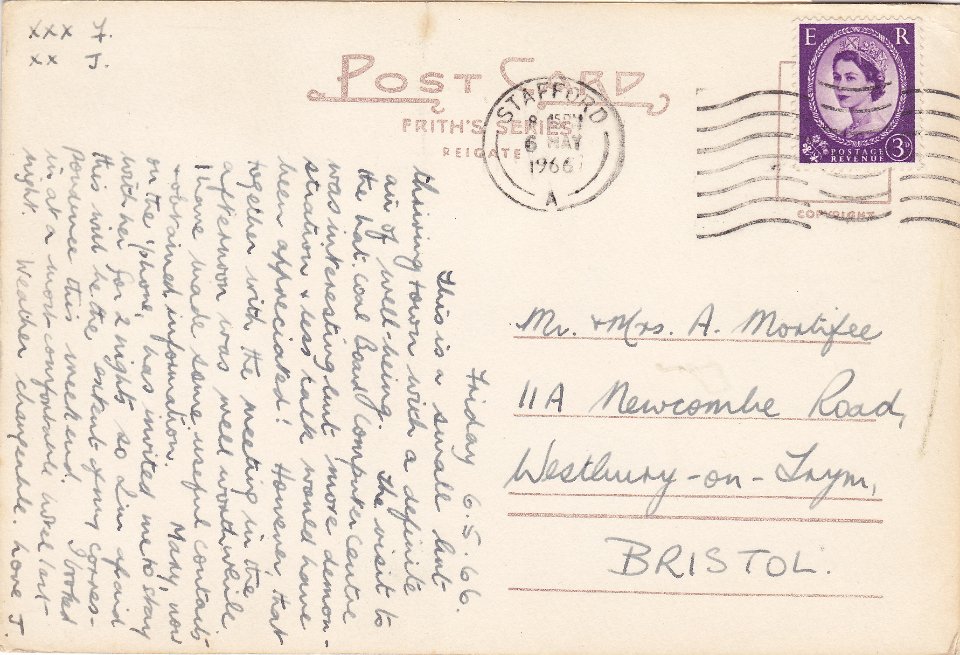 xxx F.
xx J.
POST CARD
FRITH'S SERIES
REIGATE
STAFFORD
6 MAY
1966
A
E R
POSTAGE
REVENUE
3D
COPYRIGHT
Friday 6.5.66.
This is a small but
thriving town with a definite
air of well-being. The visit to
the Nat. Coal Board Computer Centre
was interesting but more demon-
stration & less talk would have
been appreciated! However that
together with the meeting in the
afternoon was well worthwhile
I have made some useful contacts
& obtained information. Mary, now
on the 'phone, has invited me to stay
with her for 2 nights so I'm afraid
this will be the extent of my corres-
pondence this weekend. I booked
in at a most comfortable hotel last
night. Weather changeable. Love J.
Mr. & Mrs. A. Mortifee
11A Newcombe Road,
Westbury-on-Trym,
BRISTOL.